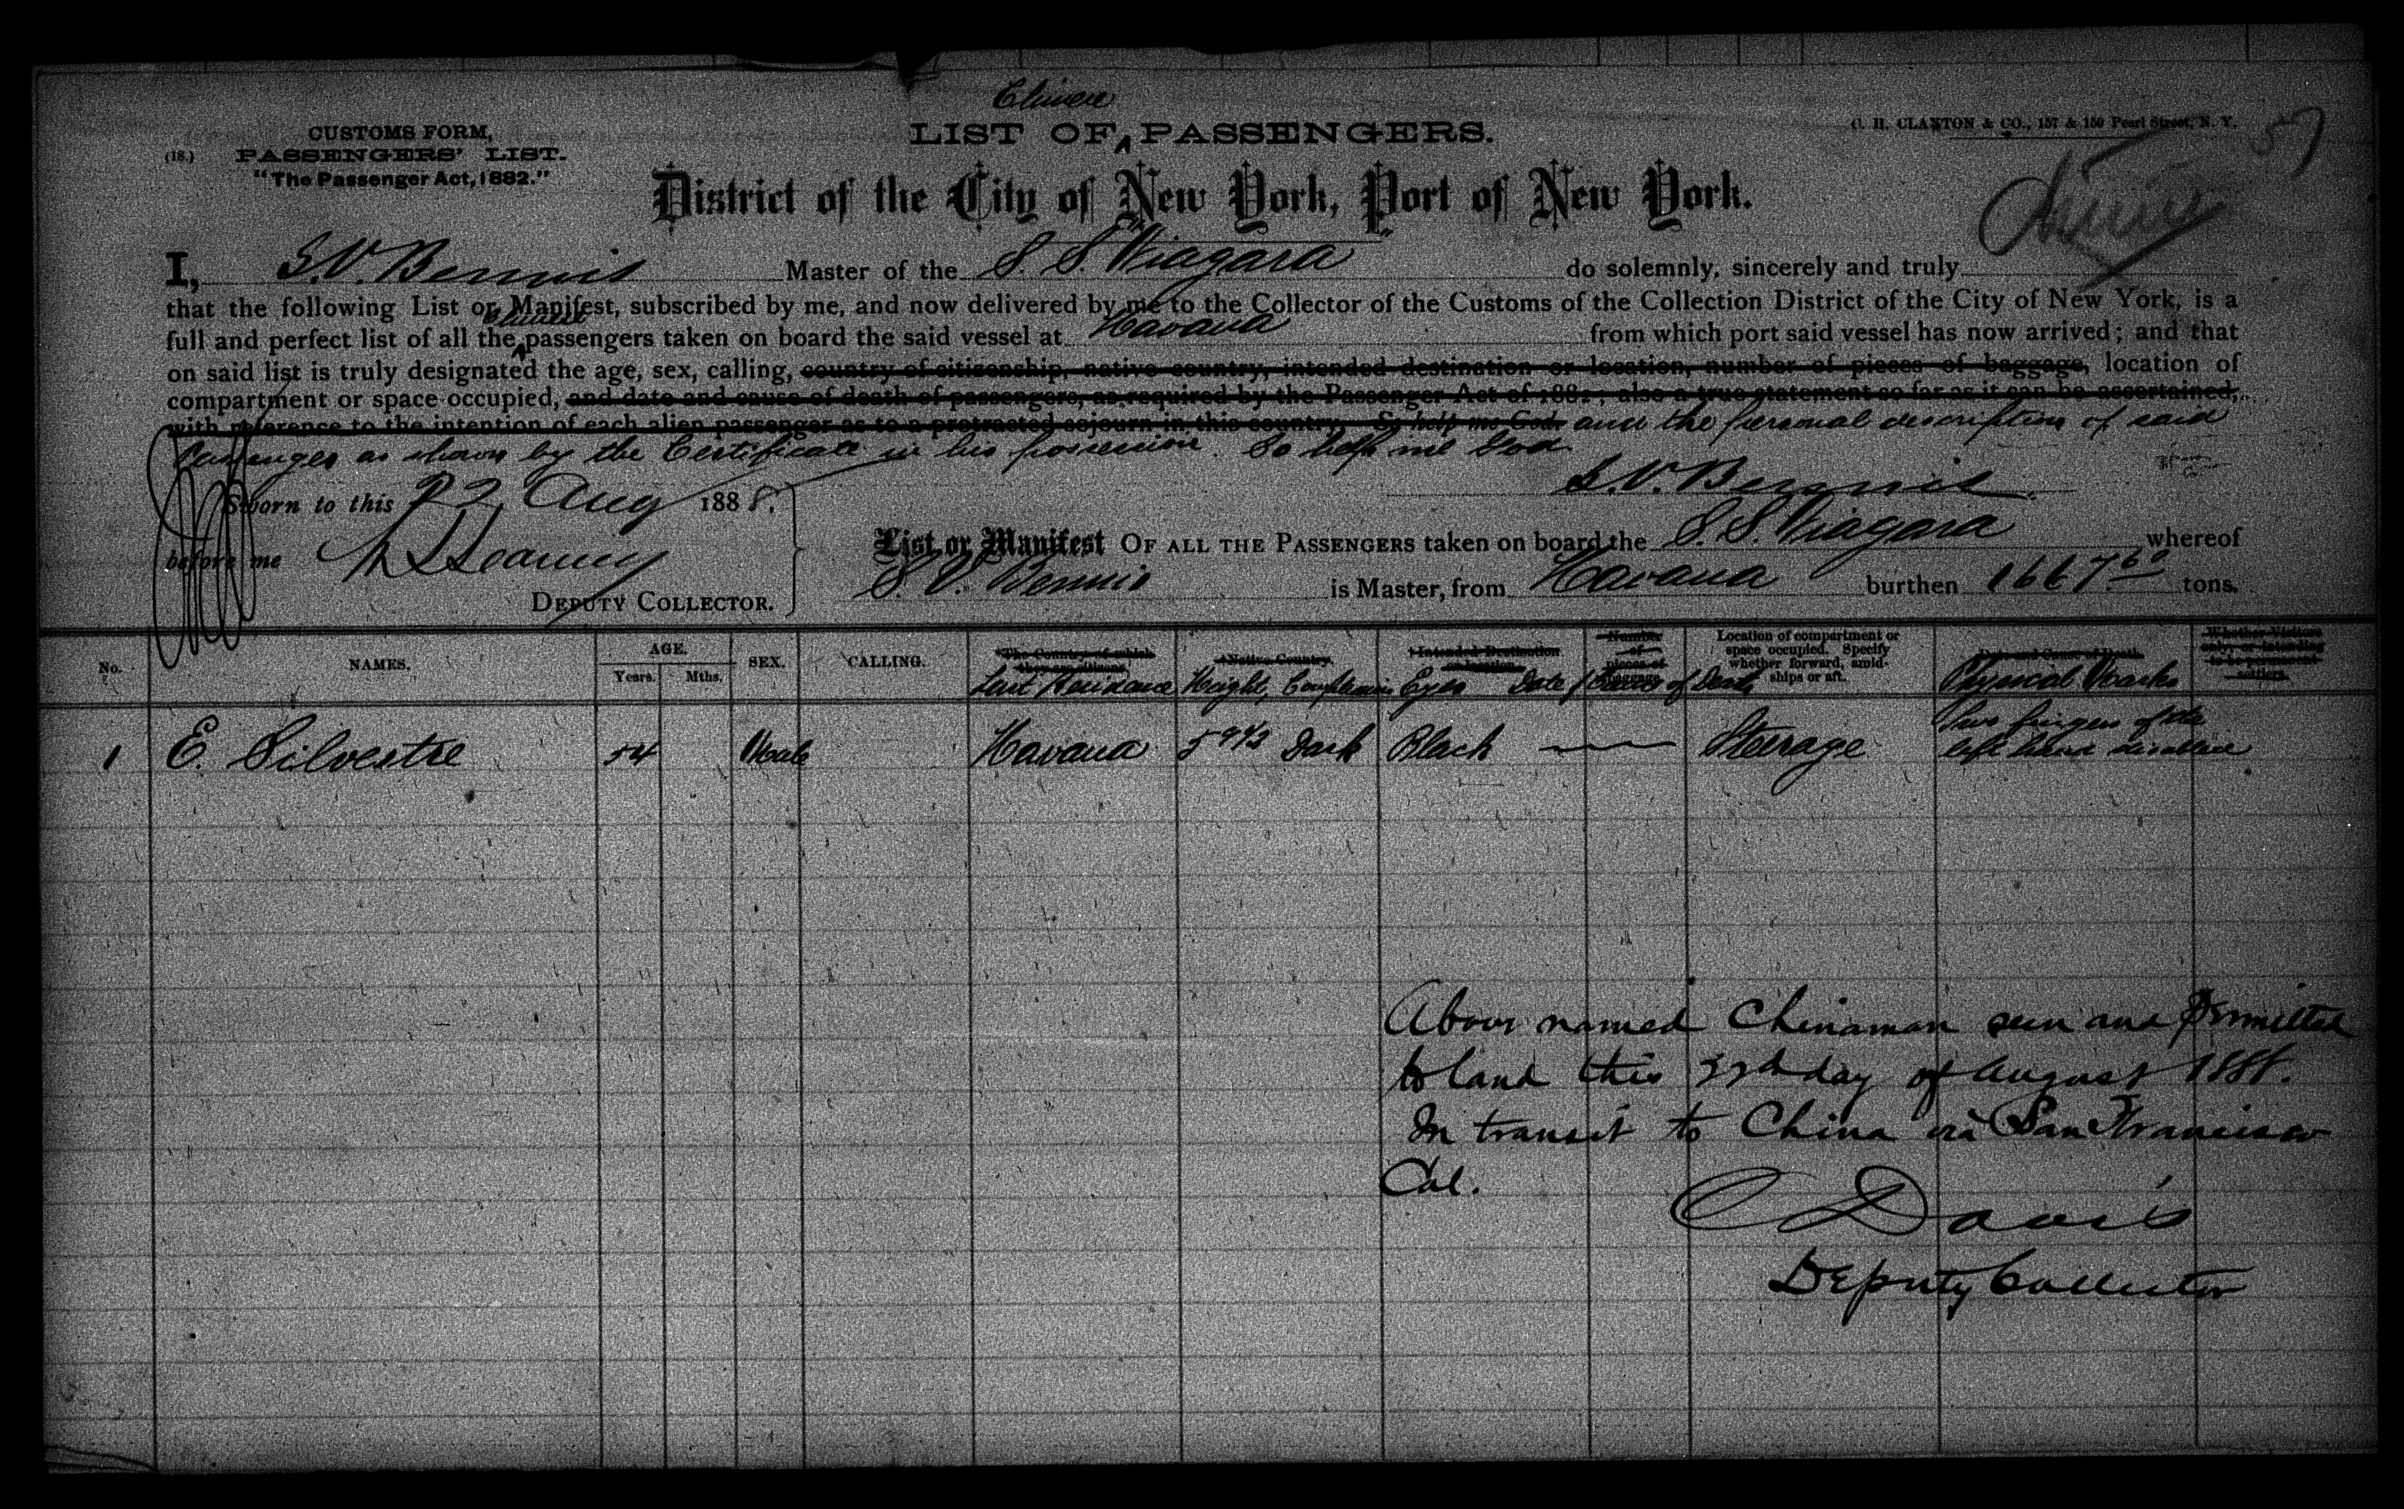 Chinese
CUSTOMS FORM,
LIST OF PASSENGERS.
C. H. CLAXTON & CO., 157 & 159 Pearl Street, N. Y.
57
(18.) PASSENGERS' LIST.
"The Passenger Act, 1882."
District of the City of New York, Port of New York.
I, S. V. Bennis Master of the S. S. "Niagara" do solemnly, sincerely and truly
that the following List or Manifest, subscribed by me, and now delivered by me to the Collector of the Customs of the Collection District of the City of New York, is a
Chinese
full and perfect list of all the passengers taken on board the said vessel at Havana from which port said vessel has now arrived; and that
on said list is truly designated the age, sex, calling, country of citizenship, native country, intended destination or location, number of pieces of baggage, location of
compartment or space occupied, and date and cause of death of passengers, as required by the Passenger Act of 1882; also a true statement so far as it can be ascertained,
with reference to the intention of each alien passenger as to a protracted sojourn in this country. So help me God. and the personal description of said
Passenger as shown by the Certificate in his possession. So help me God
S. V. Bennis
Sworn to this 22 Aug 1888.
before me
DEPUTY COLLECTOR.
List or Manifest OF ALL THE PASSENGERS taken on board the S. S. Niagara whereof
S. V. Bennis is Master, from Havana burthen 1667 60 tons.
No. NAMES. AGE. Years. Mths. SEX. CALLING. The Country of which they are citizens. Native Country. Intended Destination or location. Number of pieces of baggage. Location of compartment or space occupied. Specify whether forward, amidships or aft. Date and Cause of Death.
Last Residence Height, Complexion Eyes Date / Cause of Death Physical Marks
1 E. Silvestre 54 Male Havana 5 9 1/2 Dark Black Steerage Two fingers of the
left hand disabled
Above named Chinaman seen and permitted
to land this 22d day of August 1888.
In transit to China via San Francisco
Cal.
C Davis
Deputy Collector